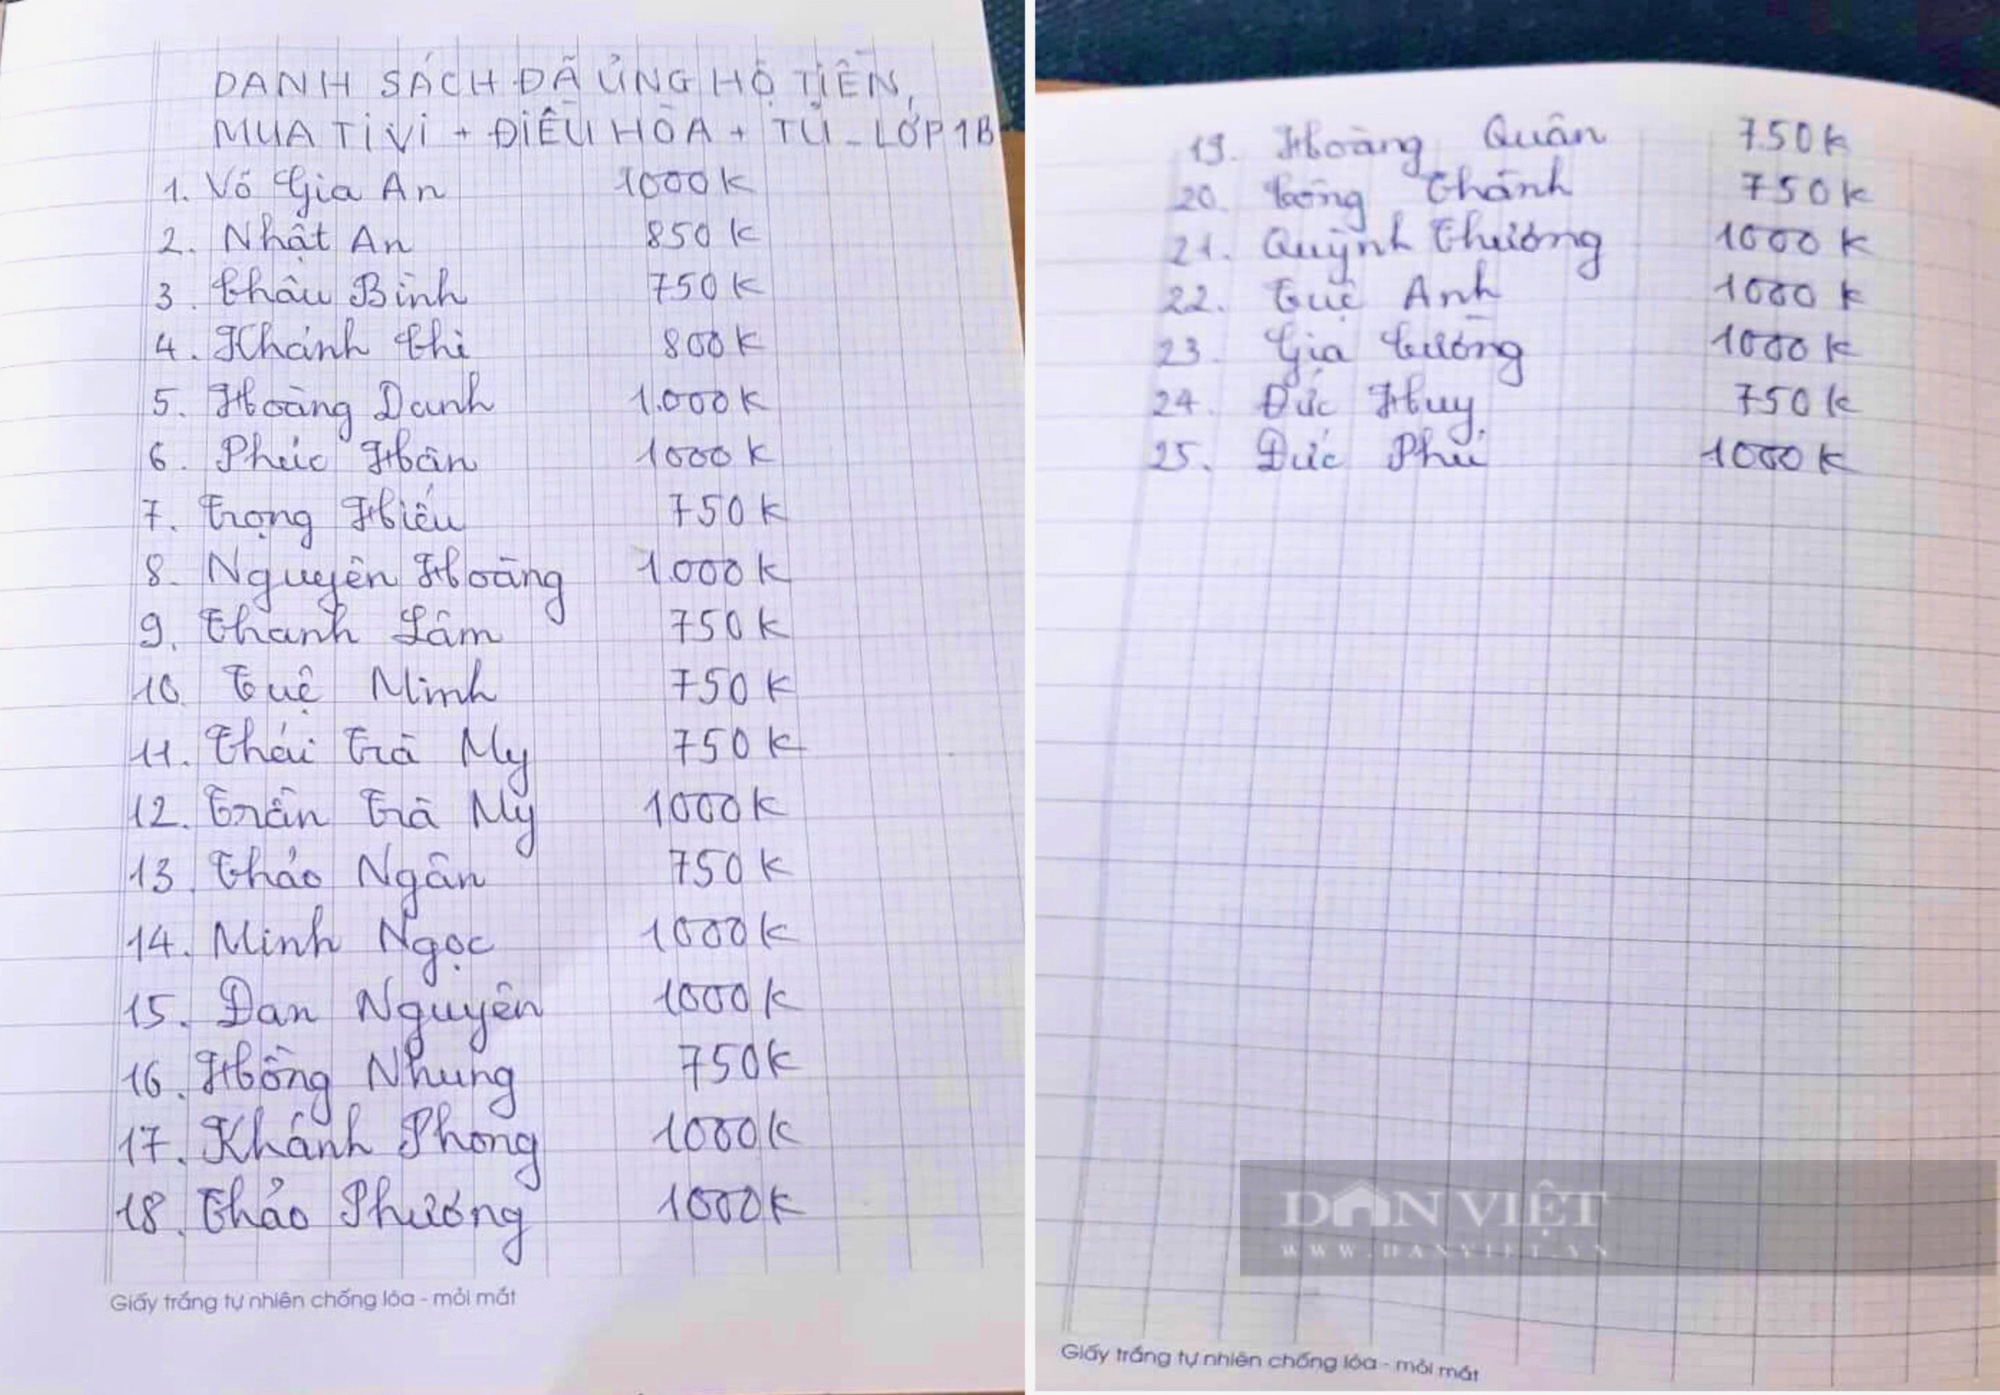 DANH SÁCH ĐÃ ỦNG HỘ TIỀN,
MUA TIVI + ĐIỀU HÒA + TỦ - LỚP 1B
1. Võ Gia An 1000K
2. Nhật An 850K
3. Châu Bình 750K
4. Khánh Chi 800K
5. Hoàng Danh 1.000K
6. Phúc Hân 1000K
7. Trọng Hiếu 750K
8. Nguyên Hoàng 1.000K
9. Thanh Lâm 750K
10. Tuệ Minh 750K
11. Thái Trà My 750K
12. Trần Trà My 1000K
13. Thảo Ngân 750K
14. Minh Ngọc 1000K
15. Đan Nguyên 1000K
16. Hồng Nhung 750K
17. Khánh Phong 1000K
18. Thảo Phương 1000K
Giấy trắng tự nhiên chống lóa - mỏi mắt
19. Hoàng Quân 750K
20. Công Thành 750K
21. Quỳnh Thương 1000K
22. Tuệ Anh 1000K
23. Gia Tường 1000K
24. Đức Huy 750K
25. Đức Phú 1000K
DÂN VIỆT
WWW.DANVIET.VN
Giấy trắng tự nhiên chống lóa - mỏi mắt